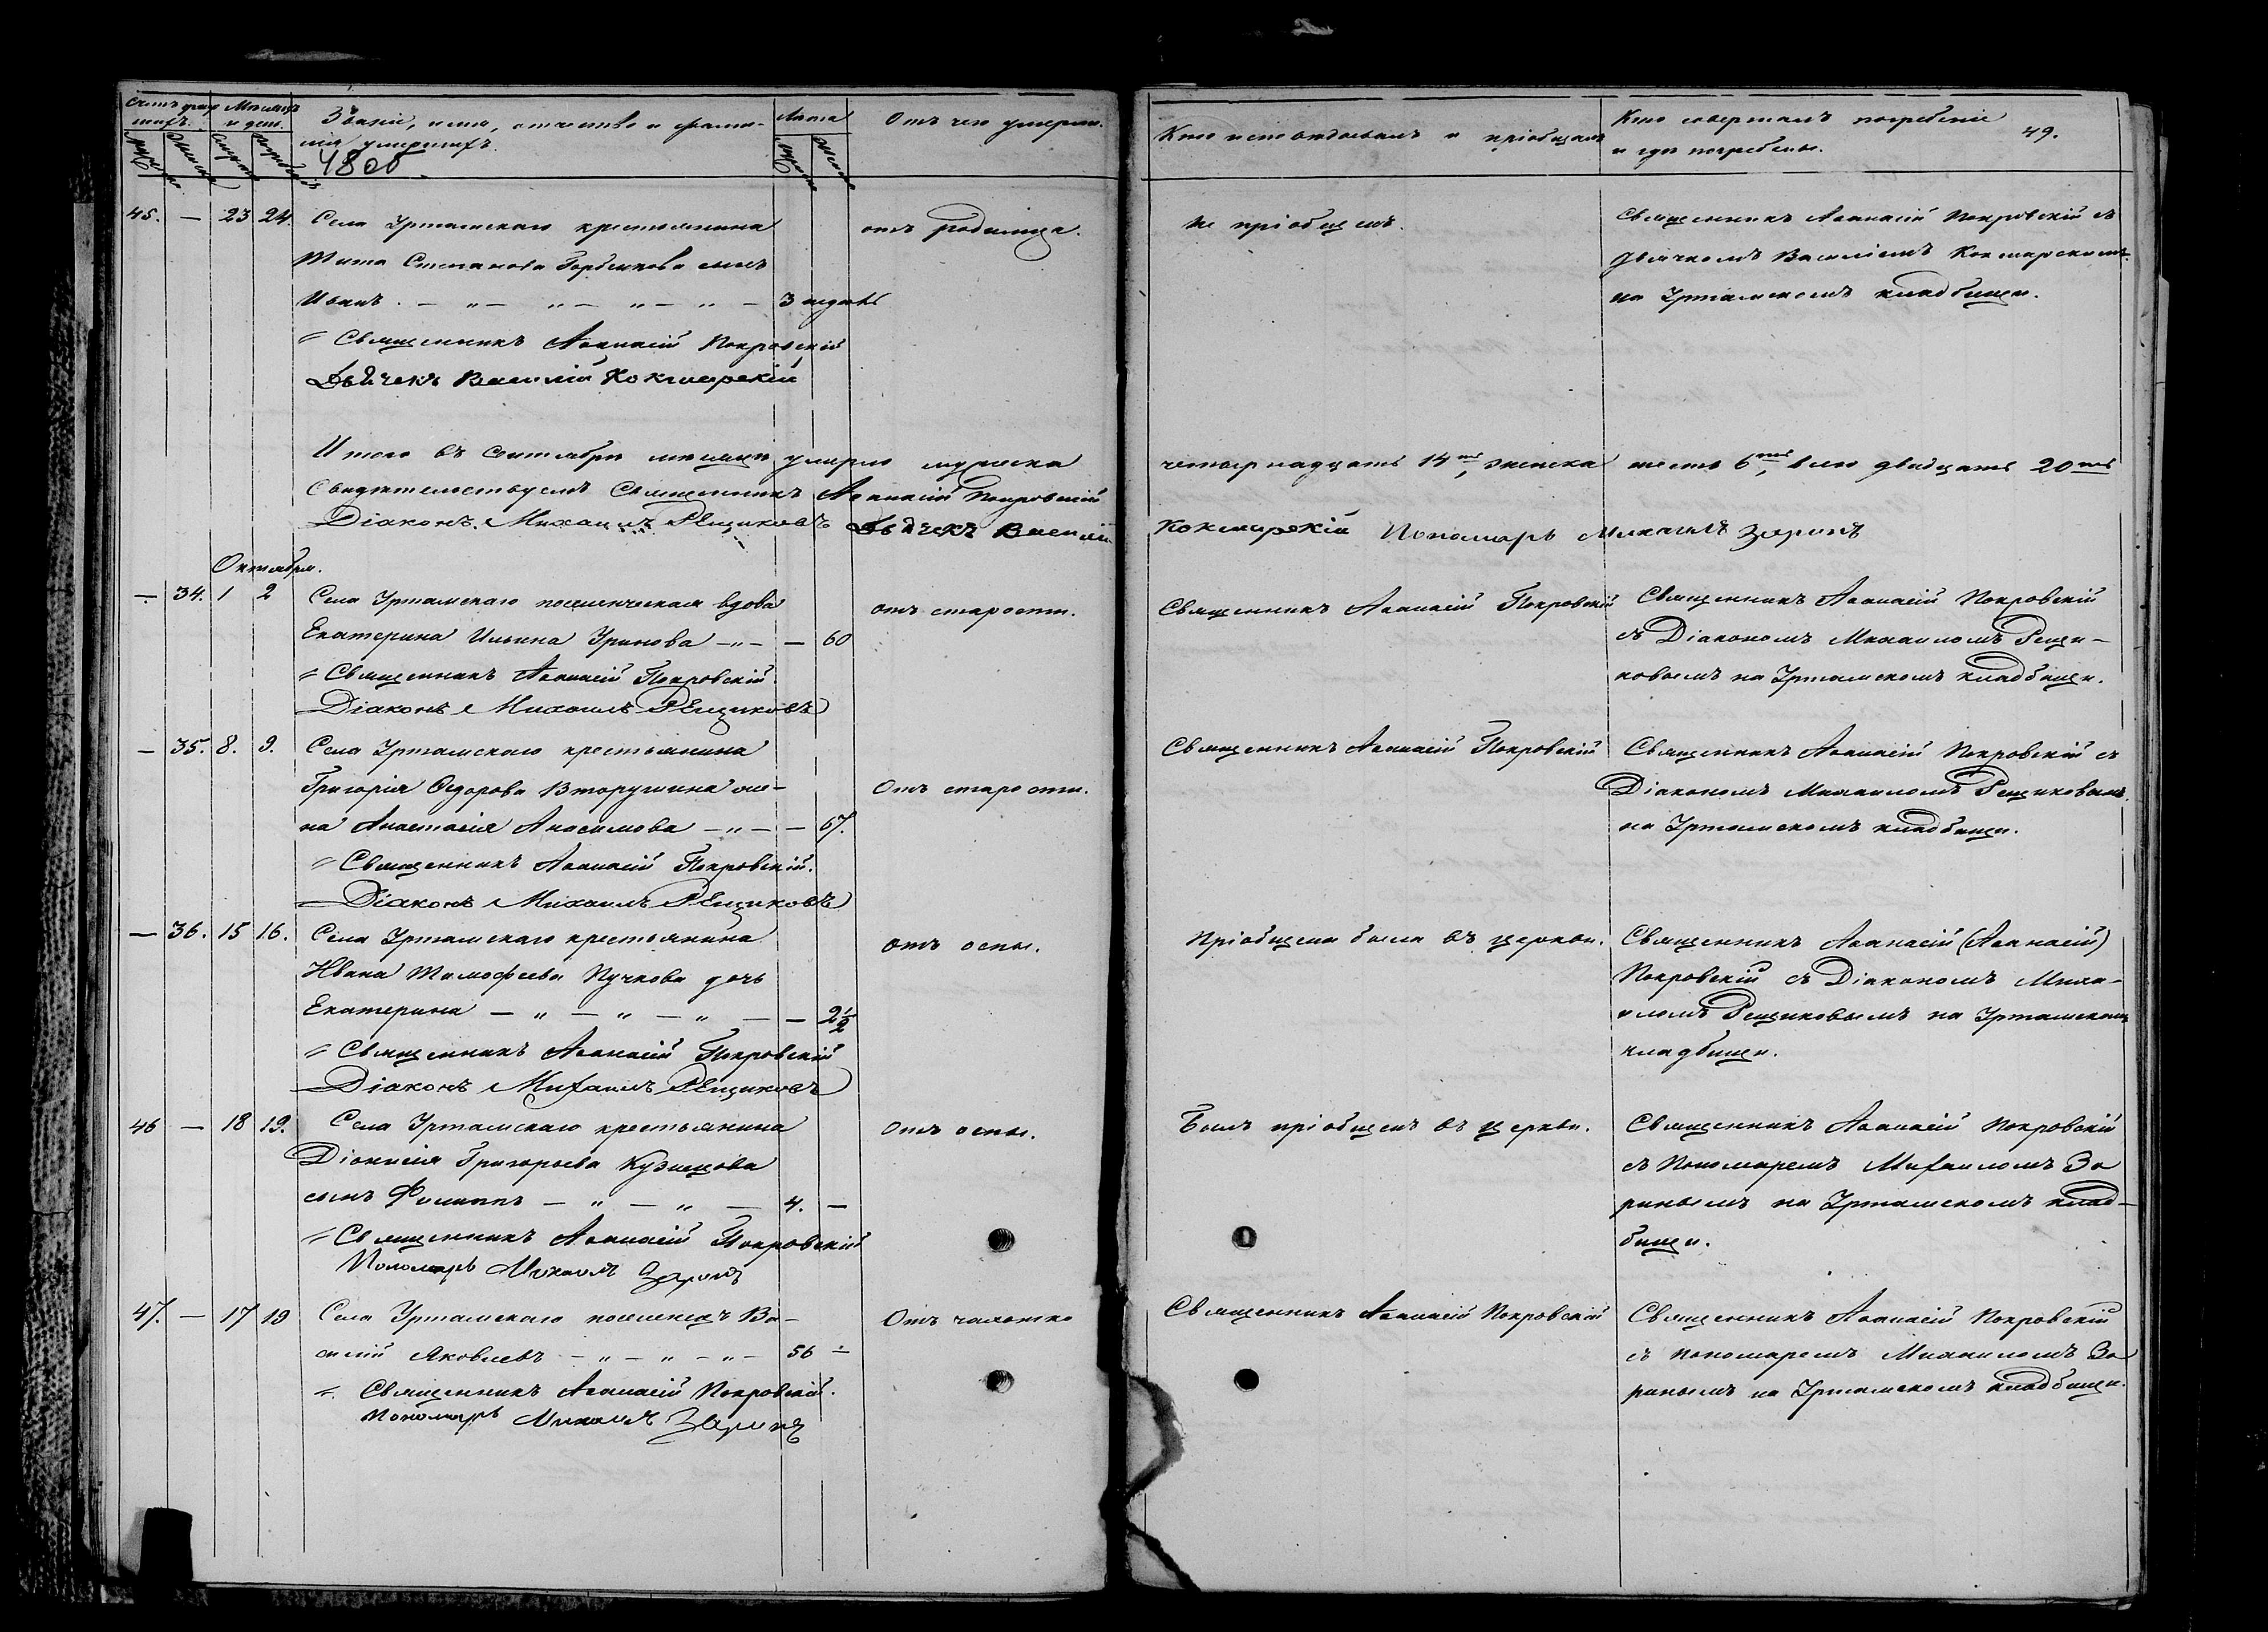 Счетъ умершихъ.
Мѣсяцъ и день.
Званіе, имя, отчество и фами-
лія умершихъ.
48 об.
Лѣта
Отъ чего умерли.
Кто исповѣдывалъ и пріобщалъ
Кто совершалъ погребеніе
и гдѣ погребены.
49.
45. — 23 24. Села Уртамскаго крестьянина
Тита Степанова Горбунова сынъ
Иванъ. — „ — „ — „ — „ — 3 недѣли
отъ родимца.
Не пріобщенъ.
Священникъ Аѳанасій Покровскій съ
дьячкомъ Василіемъ Кокшарскимъ
на Уртамскомъ кладбищѣ.
Священникъ Аѳанасій Покровскій
Дьячекъ Василій Кокшарскій
Итого въ Сентябрѣ мѣсяцѣ умерло мужеска четырнадцать 14ть, женска шесть 6ть, всего двадцать 20ть
Свидѣтельствуемъ Священникъ Аѳанасій Покровскій
Діаконъ Михаилъ Рещиковъ Дьячекъ Василій Кокшарскій Пономарь Михаилъ Заринъ
Октябрь.
— 34. 1 2 Села Уртамскаго поселенческая вдова
Екатерина Ильина — „ — — 60
отъ старости.
Священникъ Аѳанасій Покровскій
Священникъ Аѳанасій Покровскій
съ Діакономъ Михаиломъ Рещи-
ковымъ на Уртамскомъ кладбищѣ.
Священникъ Аѳанасій Покровскій.
Діаконъ Михаилъ Рещиковъ
— 35. 8. 9. Села Уртамскаго крестьянина
Григорія Ѳедорова Вторушина же-
на Анастасія Анисимова — „ — — 67.
Отъ старости.
Священникъ Аѳанасій Покровскій
Священникъ Аѳанасій Покровскій съ
Діакономъ Михаиломъ Рещиковымъ
на Уртамскомъ кладбищѣ.
Священникъ Аѳанасій Покровскій.
Діаконъ Михаилъ Рещиковъ
— 36. 15 16. Села Уртамскаго крестьянина
Ивана Тимофеева Пучкова дочь
Екатерина — „ — „ — „ — — 2½
отъ оспы.
Пріобщена была въ церкви.
Священникъ Аѳанасій (Аѳанасій)
Покровскій съ Діакономъ Миха-
иломъ Рещиковымъ на Уртамскомъ
кладбищѣ.
Священникъ Аѳанасій Покровскій
Діаконъ Михаилъ Рещиковъ
46 — 18 19. Села Уртамскаго крестьянина
Діонисія Григорьева Кузнецова
сынъ Филиппъ — „ — „ — 4. —
Отъ оспы.
Былъ пріобщенъ въ церкви.
Священникъ Аѳанасій Покровскій
съ Пономаремъ Михаиломъ За
ринымъ на Уртамскомъ клад-
бищѣ.
Священникъ Аѳанасій Покровскій
Пономарь Михаилъ Заринъ
47. — 17 19 Села Уртамскаго поселенецъ Ва-
силій Яковлевъ — „ — „ — „ — 56 —
Отъ чахотки
Священникъ Аѳанасій Покровскій
Священникъ Аѳанасій Покровскій
съ пономаремъ Михаиломъ За
ринымъ на Уртамскомъ кладбищѣ.
Священникъ Аѳанасій Покровскій.
Пономарь Михаилъ Заринъ